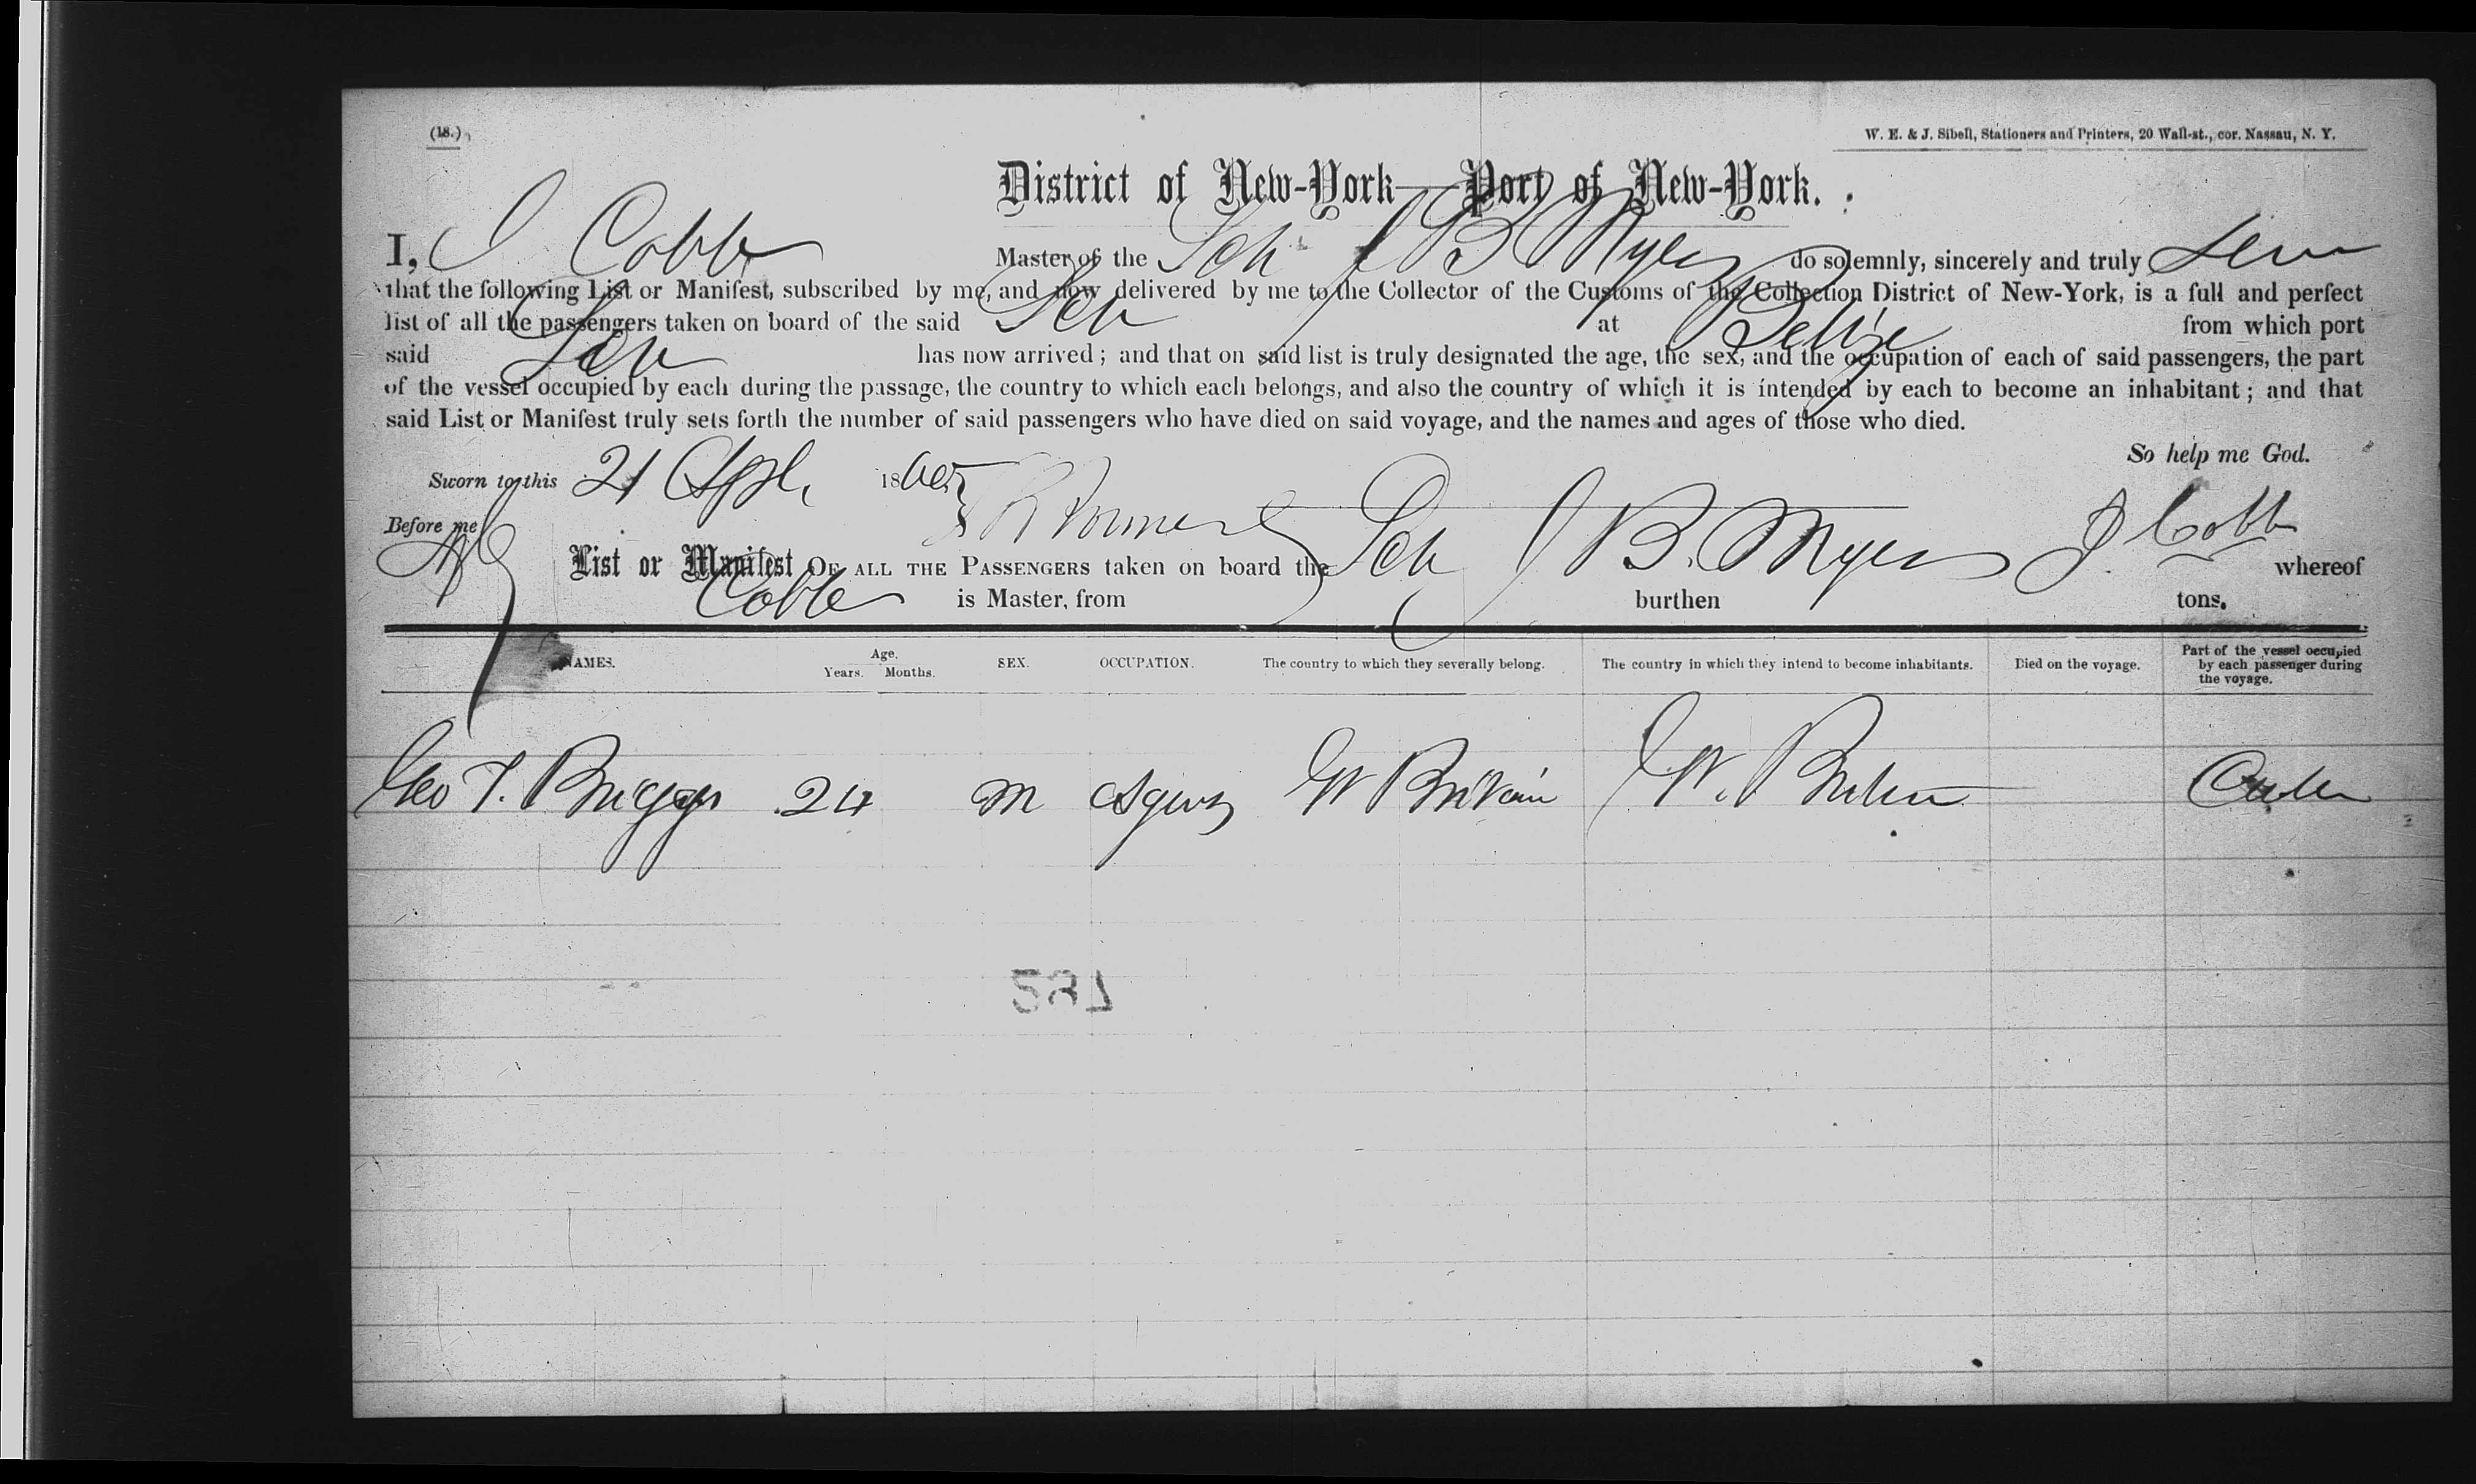 (18.)
W. E. & J. Sibell, Stationers and Printers, 20 Wall-st., cor. Nassau, N. Y.
District of New-York—Port of New-York.
I, J Cobb Master of the Sch J B Myers do solemnly, sincerely and truly
that the following List or Manifest, subscribed by me, and now delivered by me to the Collector of the Customs of the Collection District of New-York, is a full and perfect
list of all the passengers taken on board of the said Sch at Belize from which port
said Sch has now arrived; and that on said list is truly designated the age, the sex, and the occupation of each of said passengers, the part
of the vessel occupied by each during the passage, the country to which each belongs, and also the country of which it is intended by each to become an inhabitant; and that
said List or Manifest truly sets forth the number of said passengers who have died on said voyage, and the names and ages of those who died.
So help me God.
Sworn to this 21 Apl. 1865
J Cobb
Before me
List or Manifest OF ALL THE PASSENGERS taken on board the Sch J B. Myers whereof
Cobb is Master, from burthen tons.
NAMES. Age. Years. Months. SEX. OCCUPATION. The country to which they severally belong. The country in which they intend to become inhabitants. Died on the voyage. Part of the vessel occupied by each passenger during the voyage.
Geo T. Briggs 24 M Britain
297